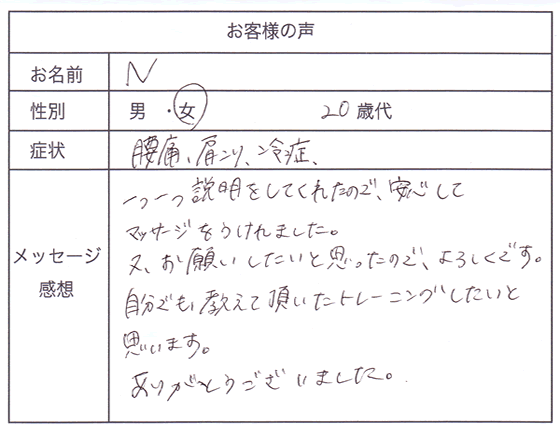 お客様の声
お名前 N
性別 男・女 20歳代
症状 腰痛、肩こり、冷症、
メッセージ
感想
一つ一つ説明をしてくれたので、安心して
マッサージをうけれました。
又、お願いしたいと思ったので、よろしくです。
自分でも教えて頂いたトレーニングしたいと
思います。
ありがとうございました。